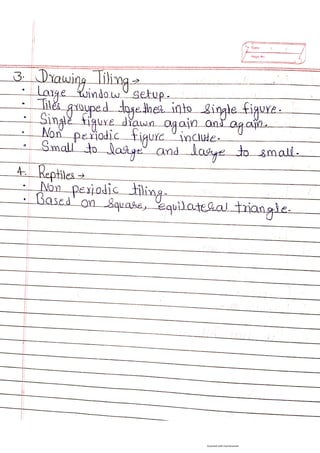 3. Drawing Tiling →
• Large window setup.
• Tiles grouped together into single figure.
• Single figure drawn again and again.
• Non periodic figure include.
• Small to large and large to small.
4. Reptiles →
• Non periodic tiling.
• Based on square, equilateral triangle.